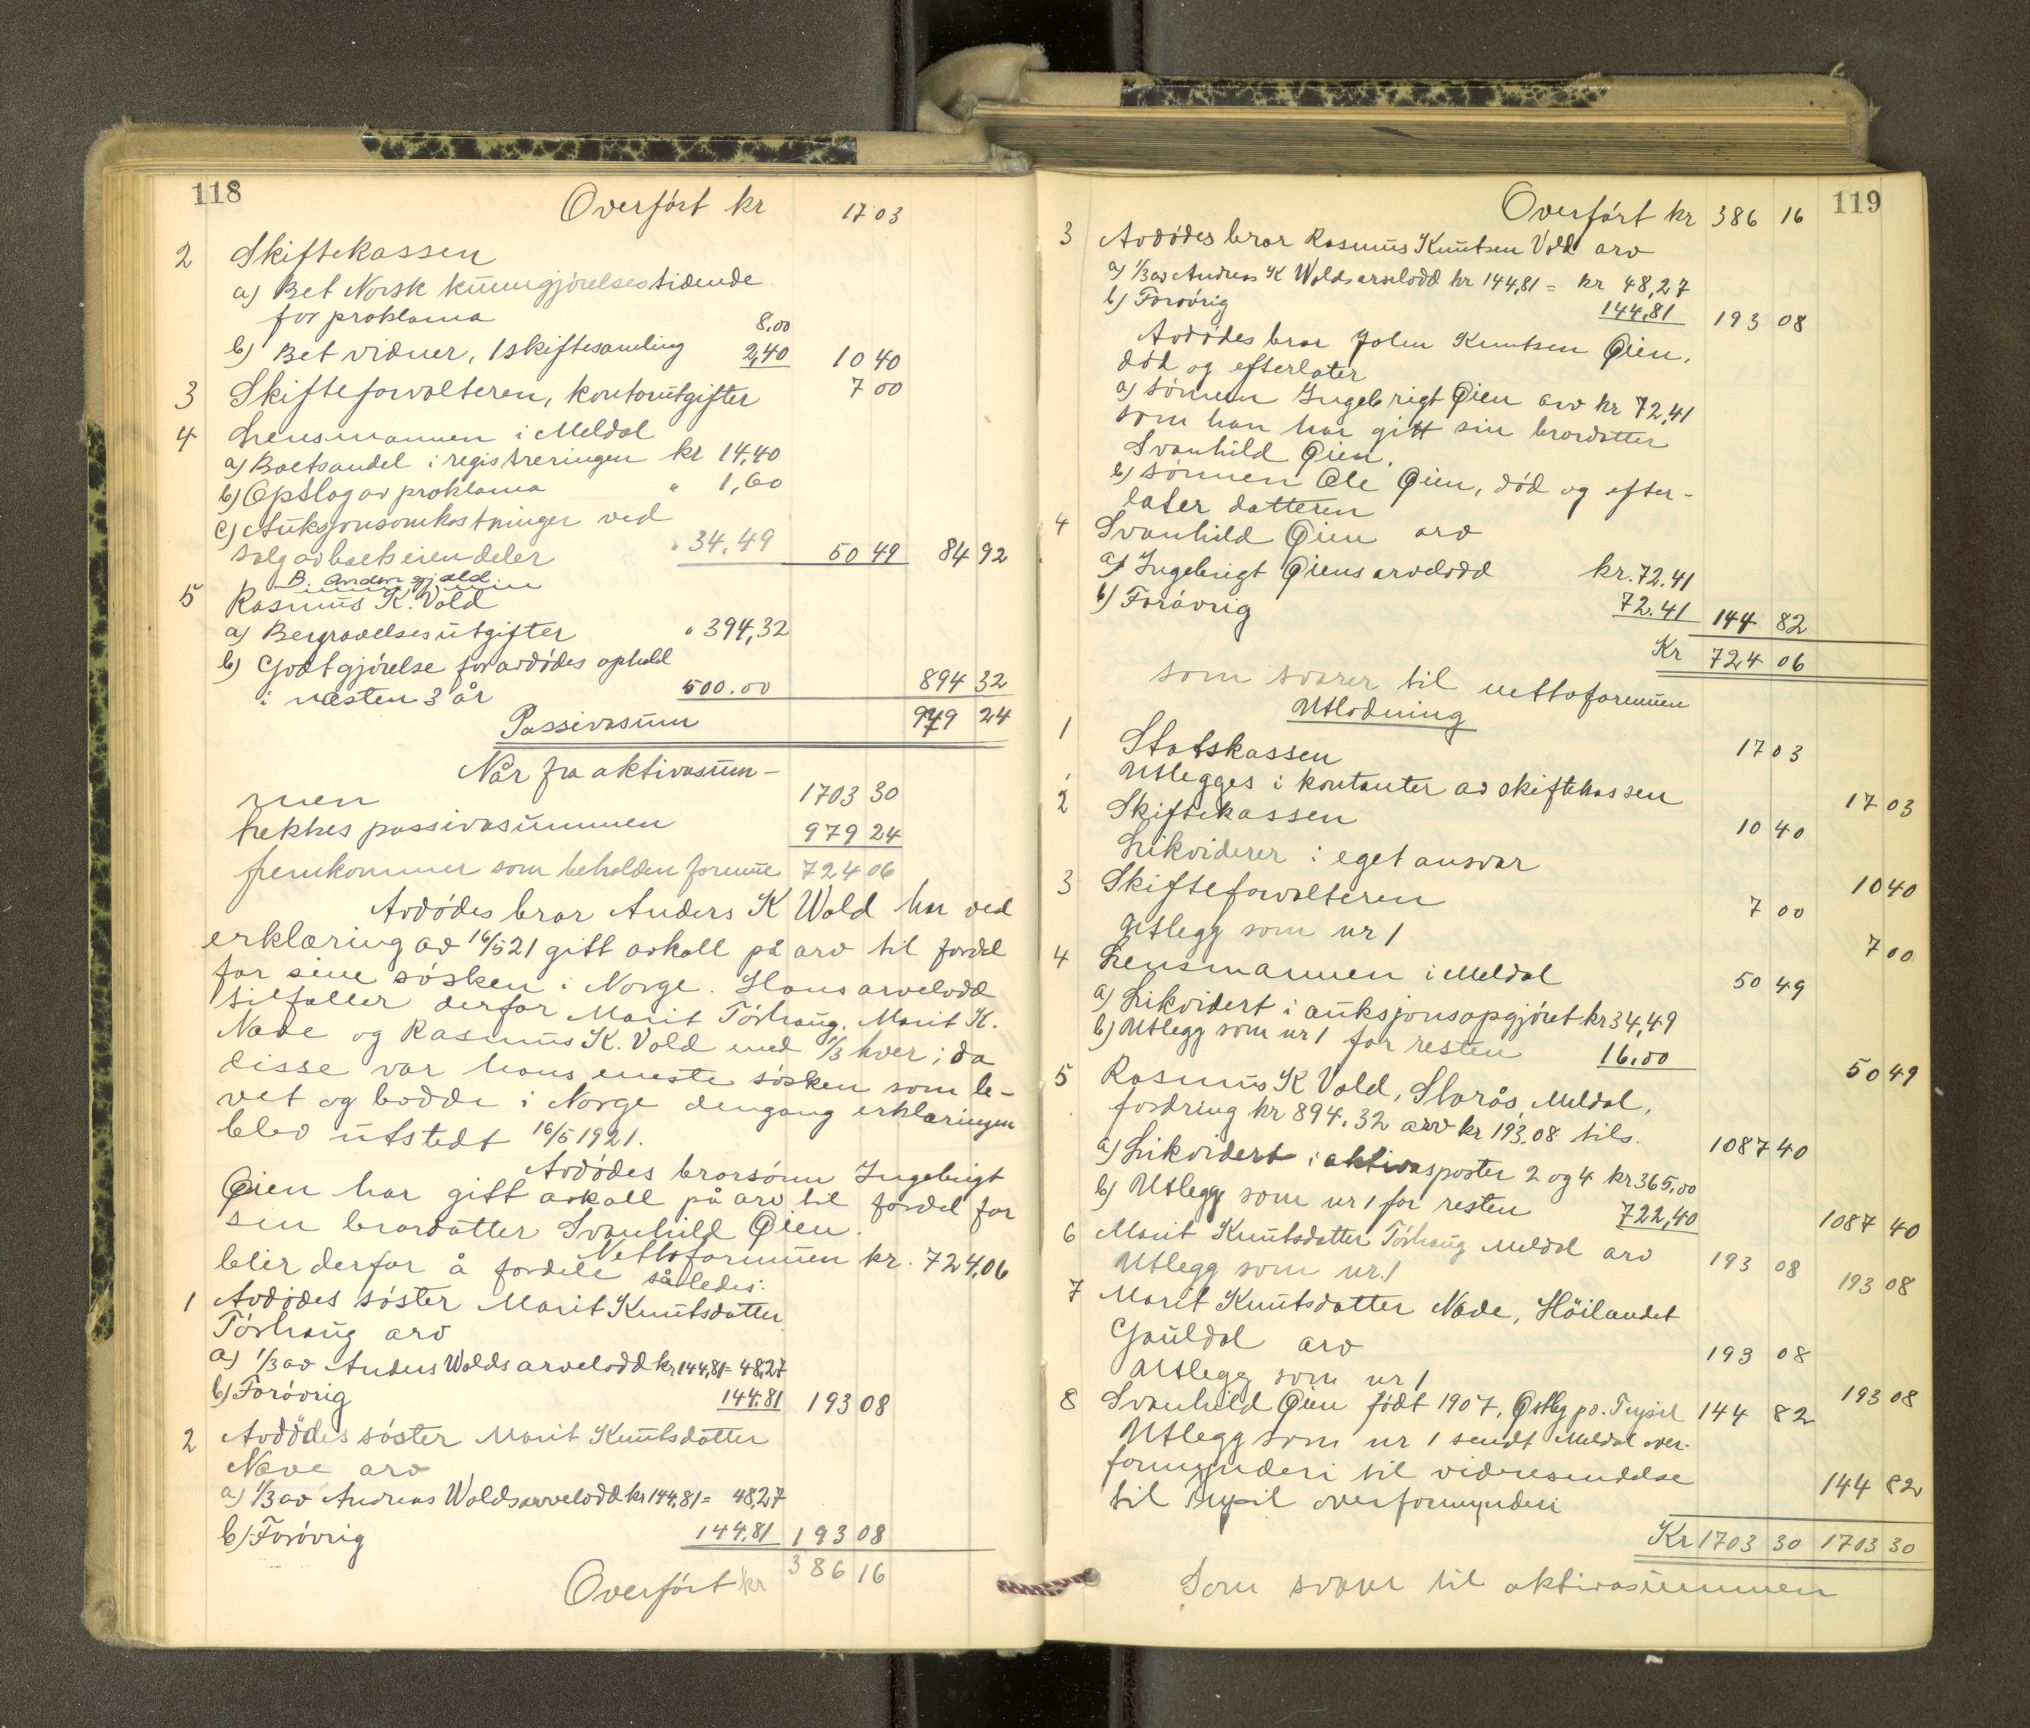 118
Overført kr 17 03
2 Skiftekassen
a) Bet Norsk kunngjørelsestidende
for proklama 8,00
b) Bet vidner, 1 skiftesamling 2,40 10 40
3 Skifteforvalteren, kontorutgifter 7 00
4 Lensmannen i Meldal
a) Boetsandel i registreringen kr 14,40
b) Opslag av proklama " 1,60
c) Auksjonsomkostninger ved
salg av boets eiendeler " 34,49 50 49 84 92
B. Anden gjæld
5 Rasmus K. Vold
a) Begravelsesutgifter " 394,32
b) Godtgjørelse for avdødes ophold
i næsten 3 år 500.00 894 32
Passivasum 979 24
Når fra aktivasum-
men 1703 30
trekkes passivasummen 979 24
fremkommer som beholden formue 724 06
Avdødes bror Anders K Wold har ved
erklæring av 16/5 21 gitt avkall på arv til fordel
for sine søsken i Norge. Hans arvelodd
tilfaller derfor Marit Tørhaug, Marit K.
Næve og Rasmus K. Vold med 1/3 hver, da
disse var hans eneste søsken som le-
vet og bodde i Norge dengang erklæringen
blev utstedt 16/5 1921.
Avdødes brorsønn Ingebrigt
Øien har gitt avkall på arv til fordel for
sin brordatter Svanhild Øien.
Nettoformuen kr. 724,06
blir derfor å fordele således:
1 Avdødes søster Marit Knutsdatter
Tørhaug arv
a) 1/3 av Anders Wolds arvelodd kr 144,81 = 48,27
b) Forøvrig 144.81 193 08
2 Avdødes søster Marit Knutsdatter
Næve arv
a) 1/3 av Andreas Wolds arvelodd kr 144,81 = 48,27
b) Forøvrig 144,81 193 08
Overført kr 386 16
119
Overført kr 386 16
3 Avdødes bror Rasmus Knutsen Vold arv
a) 1/3 av Andreas K Wolds arvelodd kr 144,81 = kr 48,27
b) Forøvrig 144,81 193 08
Avdødes bror John Knutsen Øien,
død og efterlater
a) sønnen Ingebrigt Øien arv kr 72,41
som han har gitt sin brordatter
Svanhild Øien.
b) sønnen Ole Øien, død og efter-
later datteren
4 Svanhild Øien arv
a) Ingebrigt Øiens arvelodd kr. 72.41
b) Forøvrig 72.41 144 82
Kr 724 06
som svarer til nettoformuen
Utlodning
1 Statskassen 17 03
Utlegges i kontanter av skiftekassen 17 03
2 Skiftekassen 10 40
Likviderer i eget ansvar 10 40
3 Skifteforvalteren 7 00
Utlegg som nr 1 7 00
4 Lensmannen i Meldal 50 49
a) Likvidert i auksjonsopgjøret kr 34,49
b) Utlegg som nr 1 for resten 16.00 50 49
5 Rasmus K Vold, Storås, Meldal,
fordring kr 894.32 arv kr 193.08 tils. 1087 40
a) Likvidert i aktivaposter 2 og 4 kr 365,00
b) Utlegg som nr 1 for resten 722,40 1087 40
6 Marit Knutsdatter Tørhaug Meldal arv 193 08
Utlegg som nr. 1 193 08
7 Marit Knutsdatter Næve, Höilandet
Gauldal arv 193 08
Utlegg som nr 1 193 08
8 Svanhild Øien født 1907, Østby po. Trysil 144 82
Utlegg som nr 1 sendt Meldal over-
formynderi til videresendelse
til Trysil overformynderi 144 82
Kr 1703 30 1703 30
Som svarer til aktivasummen